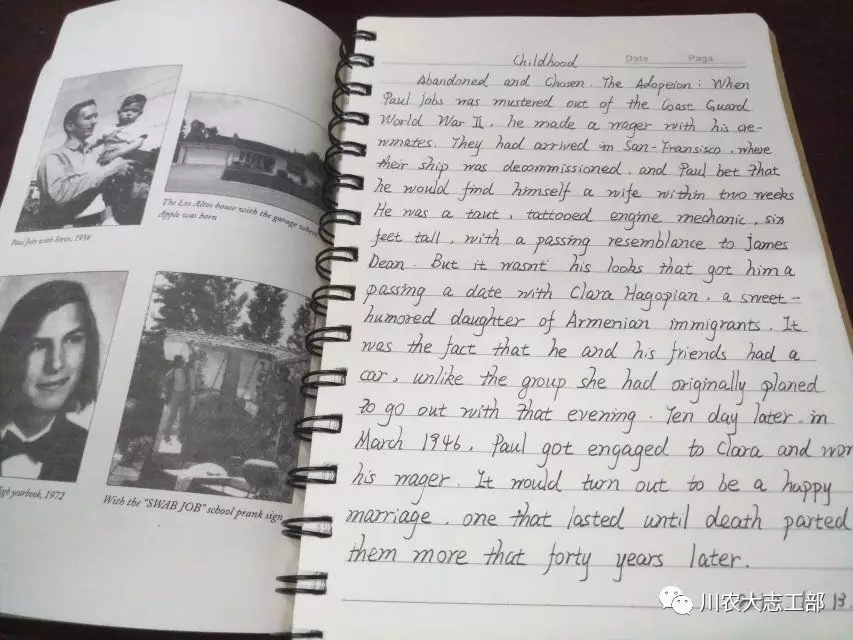 Paul Jobs with Steve, 1956
The Los Altos house with the garage where
Apple was born
high yearbook, 1972
With the "SWAB JOB" school prank sign
Childhood
Date Page
Abandoned and Chosen. The Adopeion: When
Paul jobs was mustered out of the Coast Guard
World War II, he made a wager with his cre-
wmates. They had arrived in San-Fransisco, where
their ship was decommissioned, and Paul bet that
he would find himself a wife within two weeks
He was a taut, tattooed engine mechanic, six
feet tall, with a passing resemblance to James
Dean. But it wasnt his looks that got him a
passing a date with Clara Hagopian, a sweet-
humored daughter of Armenian immigrants. It
was the fact that he and his friends had a
car, unlike the group she had originally planed
to go out with that evening. Ten day later, in
March 1946, Paul got engaged to Clara and won
his wager. It would turn out to be a happy
marriage, one that lasted until death parted
them more that forty years later.
川农大志工部
13